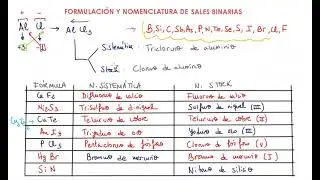 FORMULACIÓN Y NOMENCLATURA DE SALES BINARIAS
+ -
Al Cl → Al Cl₃
(B, Si, C, Sb, As, P, N, Te, Se, S, I, Br, Cl, F
+3 -1
Sistemática: Tricloruro de aluminio
Stock: Cloruro de aluminio
FÓRMULA N. SISTEMÁTICA N. STOCK
Ca F₂ Difluoruro de calcio Fluoruro de calcio
Ni₂S₃ Trisulfuro de diníquel Sulfuro de níquel (III)
CuTe Telururo de cobre Telururo de cobre (II)
Au I₃ Triyoduro de oro Yoduro de oro (III)
P Cl₅ Pentacloruro de fósforo Cloruro de fósforo (V)
Hg Br Bromuro de mercurio Bromuro de mercurio (I)
Nitruro de silicio